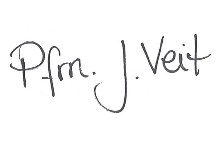 Pfrn. J. Veit